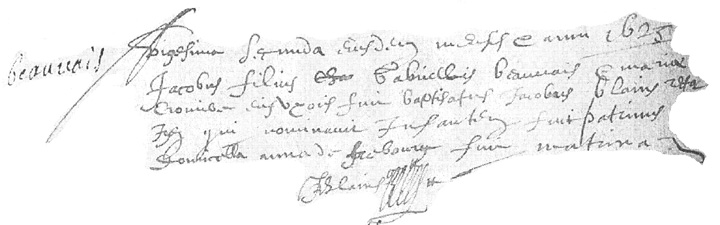 beauvais
Vigesima secunda eiusdem mensis et anni 1623
Jacobus filius Gabriellis beauvais et maria
eius uxoris fuit baptisatus Jacobus blains
qui nominavit Infantem fuit patrinus
Domicella anna de fuit matrina
Blains